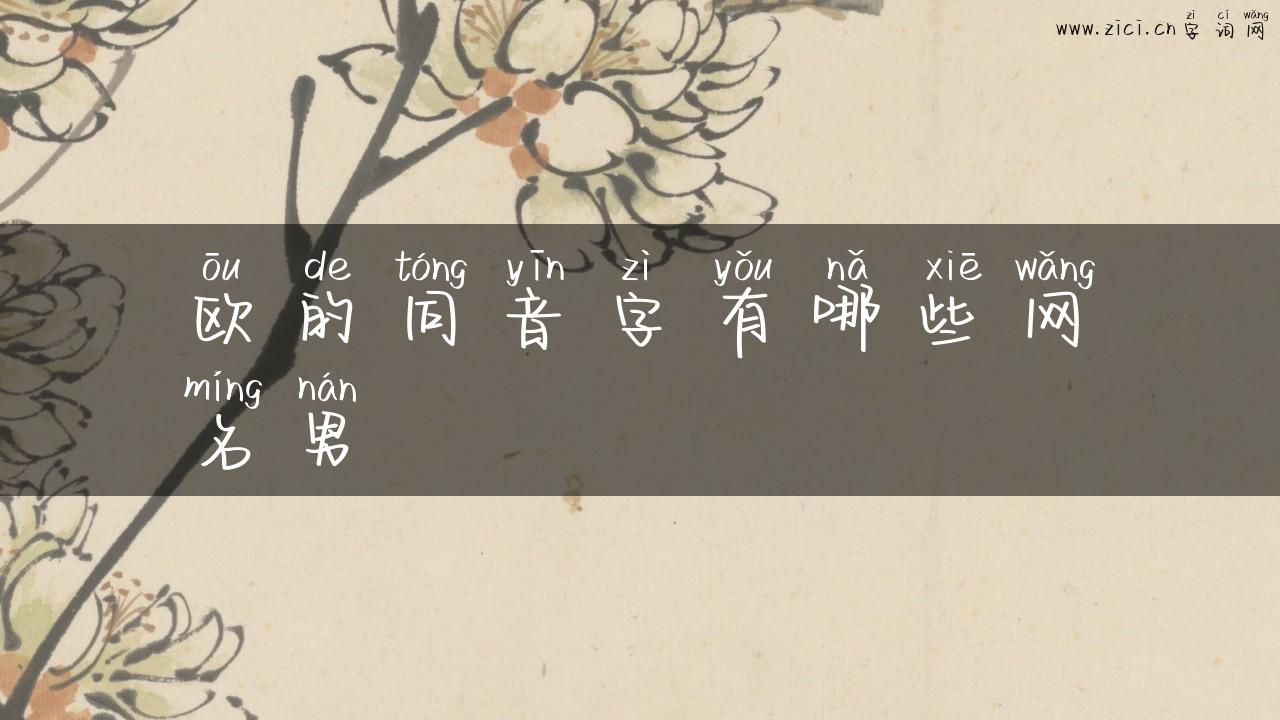 zì cí wǎng
www.zici.cn 字 词 网
ōu de tóng yīn zì yǒu nǎ xiē wǎng
欧 的 同 音 字 有 哪 些 网
míng nán
名 男